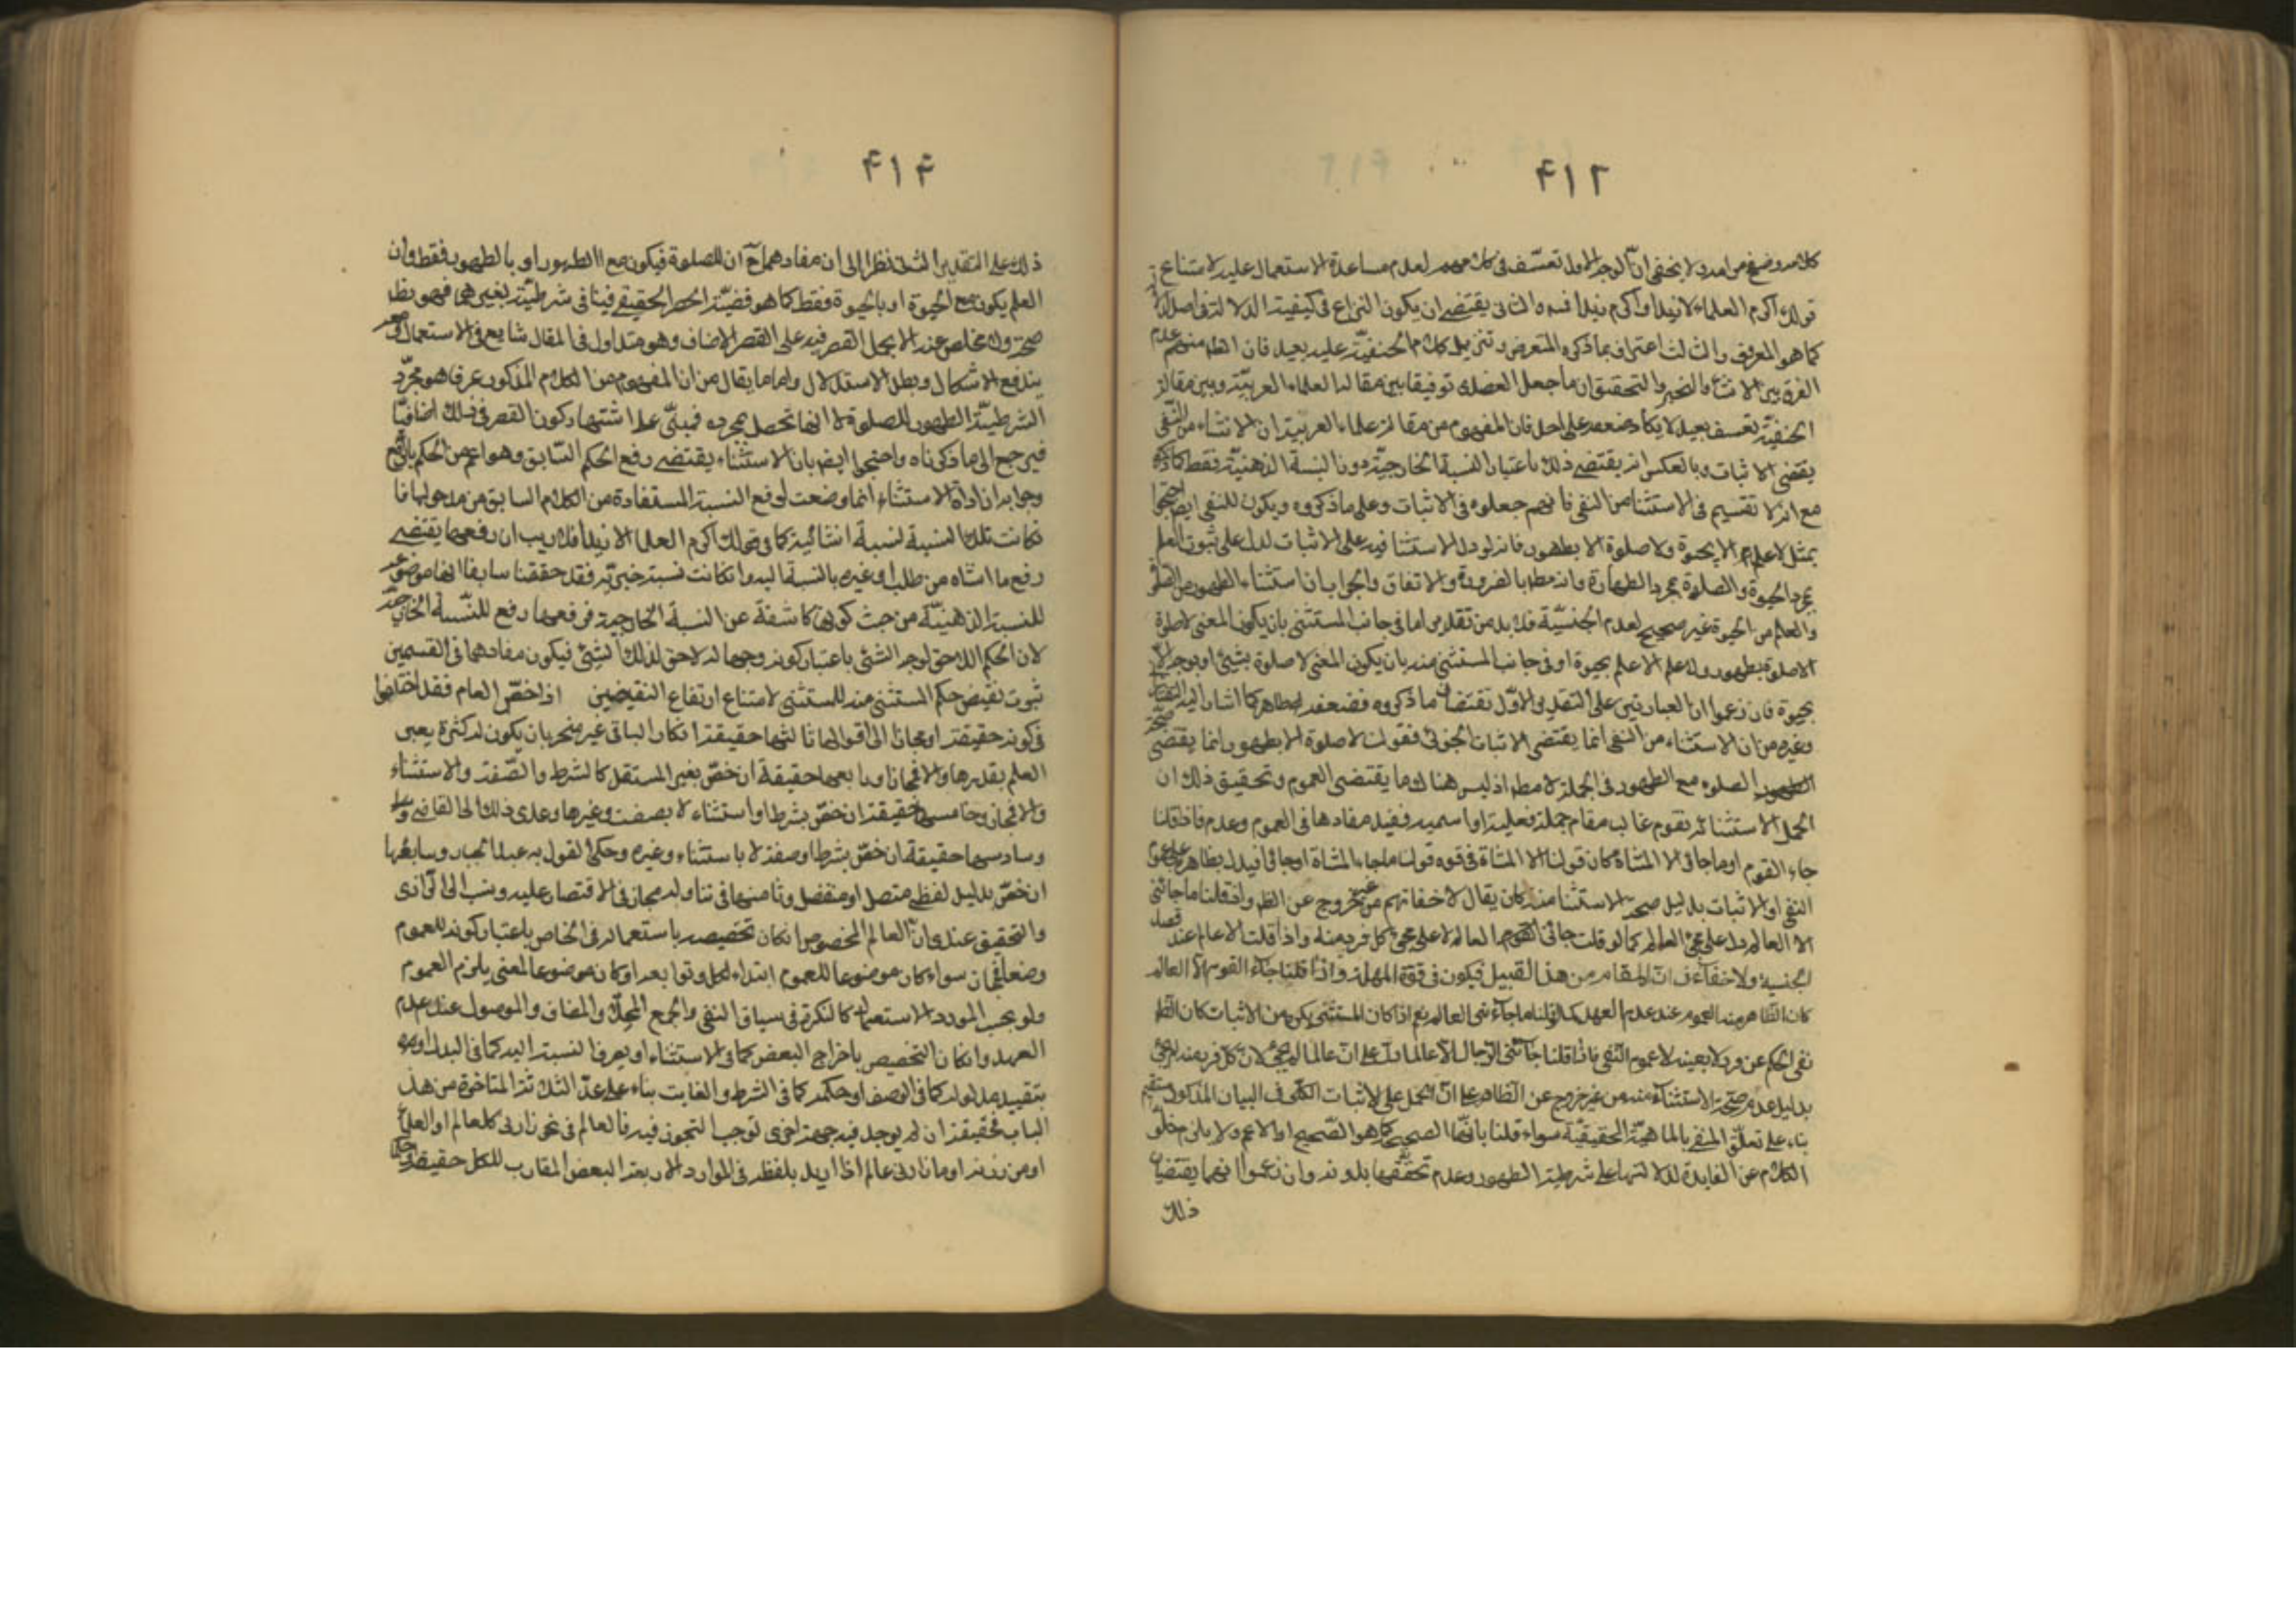 ۴۱۲
كلامه وضوح من امره ولا يخفى ان الوجه الاول تعسف فى كلامهم لعدم مساعدة الاستعمال عليه لامتناع
قولك اكرم العلماء لا زيدا واكرم زيدا فسه والثانى يقتضى ان يكون النزاع فى كيفية الدلالة لا فى اصلها
كما هو المعروف والثالث اعتراف بما ذكره المتعرض وتنزيل كلام الحنفية عليه بعيد فان الظ منهم عدم
الفرق بين الانشاء والخبر والتحقيق ان ما جعله العضدى توفيقا بين مقالة العلماء العربية وبين مقالة
الحنفية تعسف بعيد لا يكاد ضعفه على احد فان المفهوم من مقالة علماء العربية ان الاستثناء من النفى
يقتضى الاثبات وبالعكس انه يقتضى ذلك باعتبار النسبة الخارجية دون النسبة الذهنية فقط كما ذكره
مع انه لا تقسيم فى الاستثناء من النفى فانهم جعلوه فى الاثبات وعلى ما ذكروه ويكون للنفى ايض احتجوا
بمثل لا علم الا بحيوة ولا صلوة الا بطهور فانه لو دل الاستثناء فيه على الاثبات لدل على ثبوت العلم
بمجرد الحيوة والصلوة بمجرد الطهارة وانه بط بالضرورة والاتفاق والجواب ان استثناء الطهور من الصلوة
والعلم من الحيوة غير صحيح لعدم الجنسية فلا بد من تقدير اما فى جانب المستثنى بان يكون المعنى لا صلوة
الا صلوة بطهور ولا علم الا علم بحيوة او فى جانب المستثنى منه بان يكون المعنى لا صلوة بشئ او بوجه الا
بحيوة فان زعموا ان العبارتين على التقدير الاول تقتضيان ما ذكروه فضعفه ظاهر كما اشار اليه التفتازانى
وغيره من ان الاستثناء من النفى انما يقتضى الاثبات الجزئى فقولك لا صلوة الا بطهور انما يقتضى صحة
الصلوة مع الطهور فى الجملة لا مط اذ ليس هناك ما يقتضى العموم وتحقيق ذلك ان
الجمل الاستثنائية تقوم غالبا مقام جملة فعلية او اسمية فيفيد مفادها فى العموم وعدمه فاذا قلنا
جاء القوم او ما جائى الا المشاة كان قولنا الا المشاة فى قوة قولنا ما جاء المشاة او جائى فيدل بظاهره على عموم
النفى او الاثبات بدليل صحة الاستثناء منه كان يقال الا خفافهم من غير خروج عن الظ واذا قلنا ما جائنى
الا العالم دل على مجئ العالم كما لو قلت جائنى العالم لا على مجئ كل فرد منه واذا قلت الا عالم عند قصد
الجنسية ولا خفاء فى ان المقام من هذا القبيل فيكون فى قوة المهملة واذا قلنا جاء القوم الا العالم
كان الظاهر منه العموم عند عدم العهد كما لو قلنا ما جائنى العالم نعم اذا كان المستثنى نكرة من الاثبات كان الظ
نفى الحكم عن فرد لا بعينه لا عموم النفى فاذا قلنا جائنى الرجال الا عالما دل على ان عالما لم يجئ لا ان كل فرد منه لم يجئ
بدليل عدم صحة الاستثناء منه من غير خروج عن الظاهر على ان الحمل على الاثبات الكلى فى البيان المذكور مستقيم
بناء على تعلق النفى بالماهية الحقيقية سواء قلنا بانها الصحيح كما هو الصحيح او الاعم ولا يلزم خلو
الكلام عن الفايدة لدلالتها على شرطية الطهور وعدم تحققها بدونه وان زعموا انهما يقتضيان
ذلك
۴۱۴
ذلك على التقدير الثانى نظرا الى ان مفادهما ح ان للصلوة فيكون مع الطهور او بالطهور فقط وان
العلم يكون مع الحيوة او بالحيوة فقط كما هو قضية الحصر الحقيقى فينافى شرطية بغيرهما فهو بظ
صحة ولا مخلص عنه الا بحمل القصر فيه على القصر الاضافى وهو متداول فى المقال شايع فى الاستعمال ومعه
يندفع الاشكال وبطل الاستدلال واما ما يقال من ان المفهوم من الكلام المذكور عرفا هو مجرد
الشرطية الطهور للصلوة لا انها تحصل بمجرده فمبنى على اشتهار كون القصر فى ذلك اضافيا
فيرجع الى ما ذكرناه واحتجوا ايض بان الاستثناء يقتضى رفع الحكم السابق وهو اعم من الحكم بالرفع
وجوابه ان اداة الاستثناء انما وضعت لرفع النسبة المستفادة من الكلام السابق من مدخولها فان
كانت تلك النسبة نسبة انشائية كما فى قولك اكرم العلماء الا زيدا فلا ريب ان رفعها يقتضى
رفع ما انشاه من طلب او غيره بالنسبة اليه وان كانت نسبة خبرية فقد حققنا سابقا انها موضوعة
للنسبة الذهنية من حيث كونها كاشفة عن النسبة الخارجية فرفعها رفع للنسبة الخارجية
لان الحكم اللاحق لوجه الشئ باعتبار كونه وجها له لاحق لذلك الشئ فيكون مفادهما فى القسمين
ثبوت نقيض حكم المستثنى منه للمستثنى لامتناع ارتفاع النقيضين اذا خص العام فقد اختلفوا
فى كونه حقيقة او مجازا الى اقوال ثالثها حقيقة ان كان الباقى غير منحصر بان يكون له كثرة يعسر
العلم بقدرها والا فمجاز ورابعها حقيقة ان خص بغير المستقل كالشرط والصفة والاستثناء
والا فمجاز وخامسها حقيقة ان خص بشرط او استثناء لا بصفة وغيرها وعزى ذلك الى القاضى
وسادسها حقيقة ان خص بشرط او صفة لا باستثناء وغيره وحكى القول به عبد الجبار وسابعها
ان خص بدليل لفظى متصل او منفصل وثامنها فى تناوله مجاز فى الاقتصار عليه ونسب الى الرازى
والتحقيق عندى ان العالم المخصوص ان كان تخصيصه باستعماله فى الخاص باعتبار كونه للعموم
وضعا فمجاز سواء كان موضوعا للعموم ابتداء ككل وتوابعه او كان موضوعا لمعنى يلزم العموم
ولو بحسب المورد الاستعمال كالنكرة فى سياق النفى والجمع المحلى والمضاف والموصول عند عدم
العهد وان كان التخصيص باخراج البعض كما فى الاستثناء او بصرف النسبة اليه كما فى البدل او
بتقييد مدلوله كما فى الوصف او حكمه كما فى الشرط والغاية بناء على عد الثلاثة المتاخرة من هذا
الباب فحقيقة ان لم يوجد فيه جهة اخرى توجب التجوز فيه فالعالم فى نحو زارنى كل عالم او العلماء
او من زرته او ما زارنى عالم اذا اريد بلفظه فى الموارد الاربعة البعض المقارب للكل حقيقة